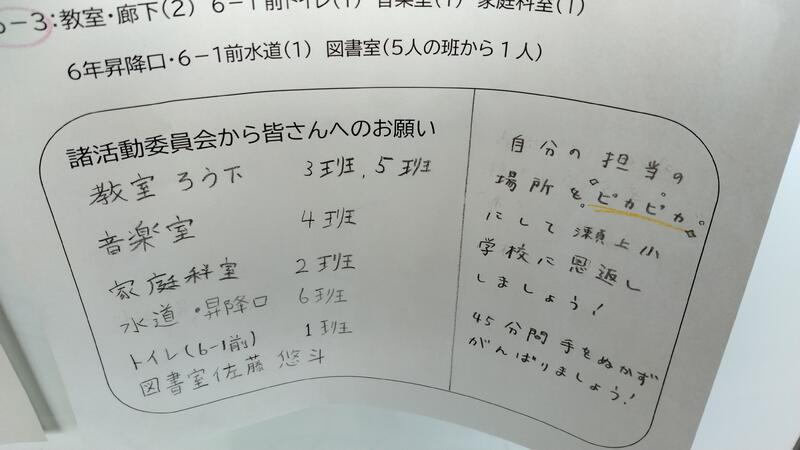 6-3:教室・廊下(2) 6-1前トイレ(1) 音楽室(1) 家庭科室(1)
6年昇降口・6-1前水道(1) 図書室(5人の班から1人)
諸活動委員会から皆さんへのお願い
教室 ろう下 3班,5班
音楽室 4班
家庭科室 2班
水道・昇降口 6班
トイレ(6-1前) 1班
図書室 佐藤 悠斗
自分の担当の
場所をピカピカ
にして瀬上小
学校に恩返し
しましょう!
45分間手をぬかず
がんばりましょう!